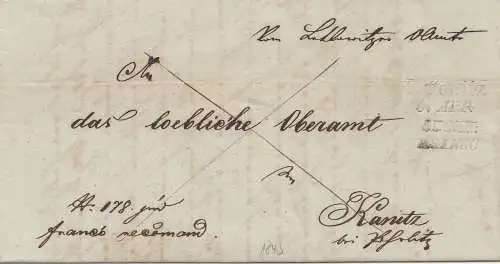 Vom Lettowitzer OAmte
An
das loebliche Oberamt
in
Kanitz
bei Pohrlitz
N: 178 jud
franco recomand.
1843